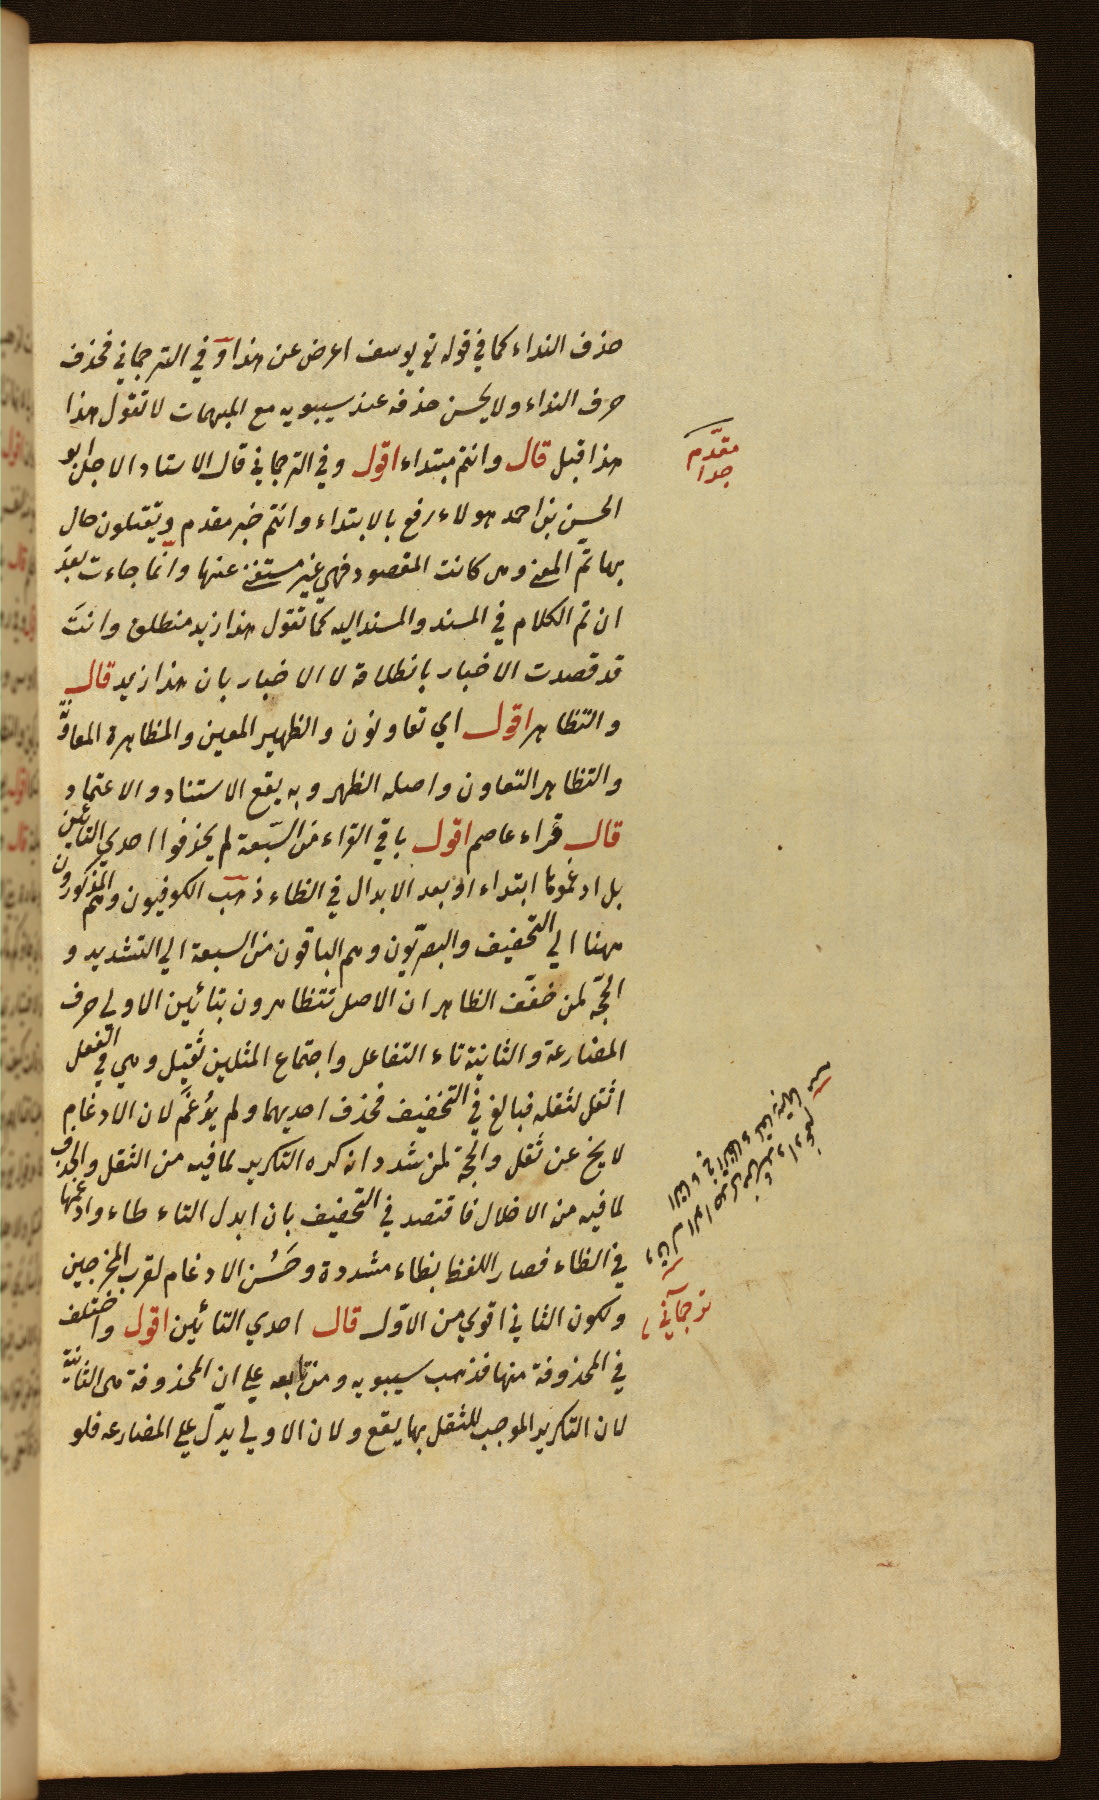 حذف النداء كما في قوله تع يوسف اعرض عن هذا و في الترجماني فحذف
حرف النداء ولا يحسن حذفه عند سيبويه مع المبهمات لا تقول هذا
هذا قبل قال وانتم مبتداء اقول وفي الترجماني قال الاستاد الاجل ابو
الحسين بن احمد هولاء رفع بالابتداء وانتم خبر مقدم وتقتلون حال
بها تم المعنى وهي كانت المقصود فهي غير مستغن عنها وانما جاءت بعد
ان تم الكلام في المسند والمسند اليه كما تقول هذا زيد منطلق وانتَ
قد قصدت الاخبار بانطلاقه لا الاخبار بان هذا زيد قال
والتظاهر اقول اي تعاونون والظهير المعين والمظاهرة المعاونة
والتظاهر التعاون واصله الظهر وبه يقع الاستناد والاعتماد
قال قراء عاصم اقول باقي القراء من السبعة لم يحذفوا احدي التائين
بل ادغموها ابتداء او بعد الابدال في الظاء ذهب الكوفيون وهم المذكورون
ههنا الي التخفيف والبصريون وهم الباقون من السبعة الي التشديد و
الحجة لمن خفف الظاهر ان الاصل تتظاهرون بتائين الاولي حرف
المضارعة والثانية تاء التفاعل واجتماع المثلين ثقيل وهي في الفعل
اثقل لثقله فبالغ في التخفيف فحذف احديهما ولم يُدغم لان الادغام
لا يخ عن ثقل والحجة لمن شدد انه كره التكرير لما فيه من الثقل والحذف
لما فيه من الاخلال فاقتصد في التخفيف بان ابدل التاء طاء وادغمها
في الظاء فصار اللفظ بظاء مشددة وحَسُن الادغام لقرب المخرجين
ولكون الثاني اقوي من الاول قال احدي التائين اقول واختلف
في المحذوفة منها فذهب سيبويه ومن تابعه علي ان المحذوفة هي الثانية
لان التكرير الموجب للثقل بها يقع ولان الاولي يدل علي المضارعه فلو
مقدم
جدا
ترجماني